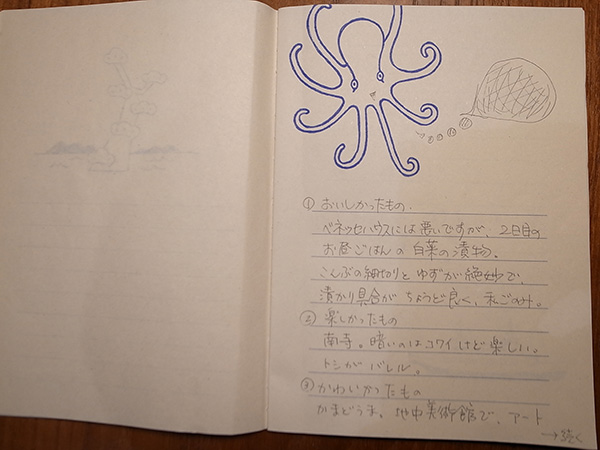 ① おいしかったもの。
ベネッセハウスには悪いですが、2日目の
お昼ごはんの白菜の漬物。
こんぶの細切りとゆずが絶妙で、
漬かり具合がちょうど良く、私ごのみ。
② 楽しかったもの
南寺。暗いのはコワイけど楽しい。
トシがバレル。
③ かわいかったもの
かまどうま。地中美術館で、アート
→続く